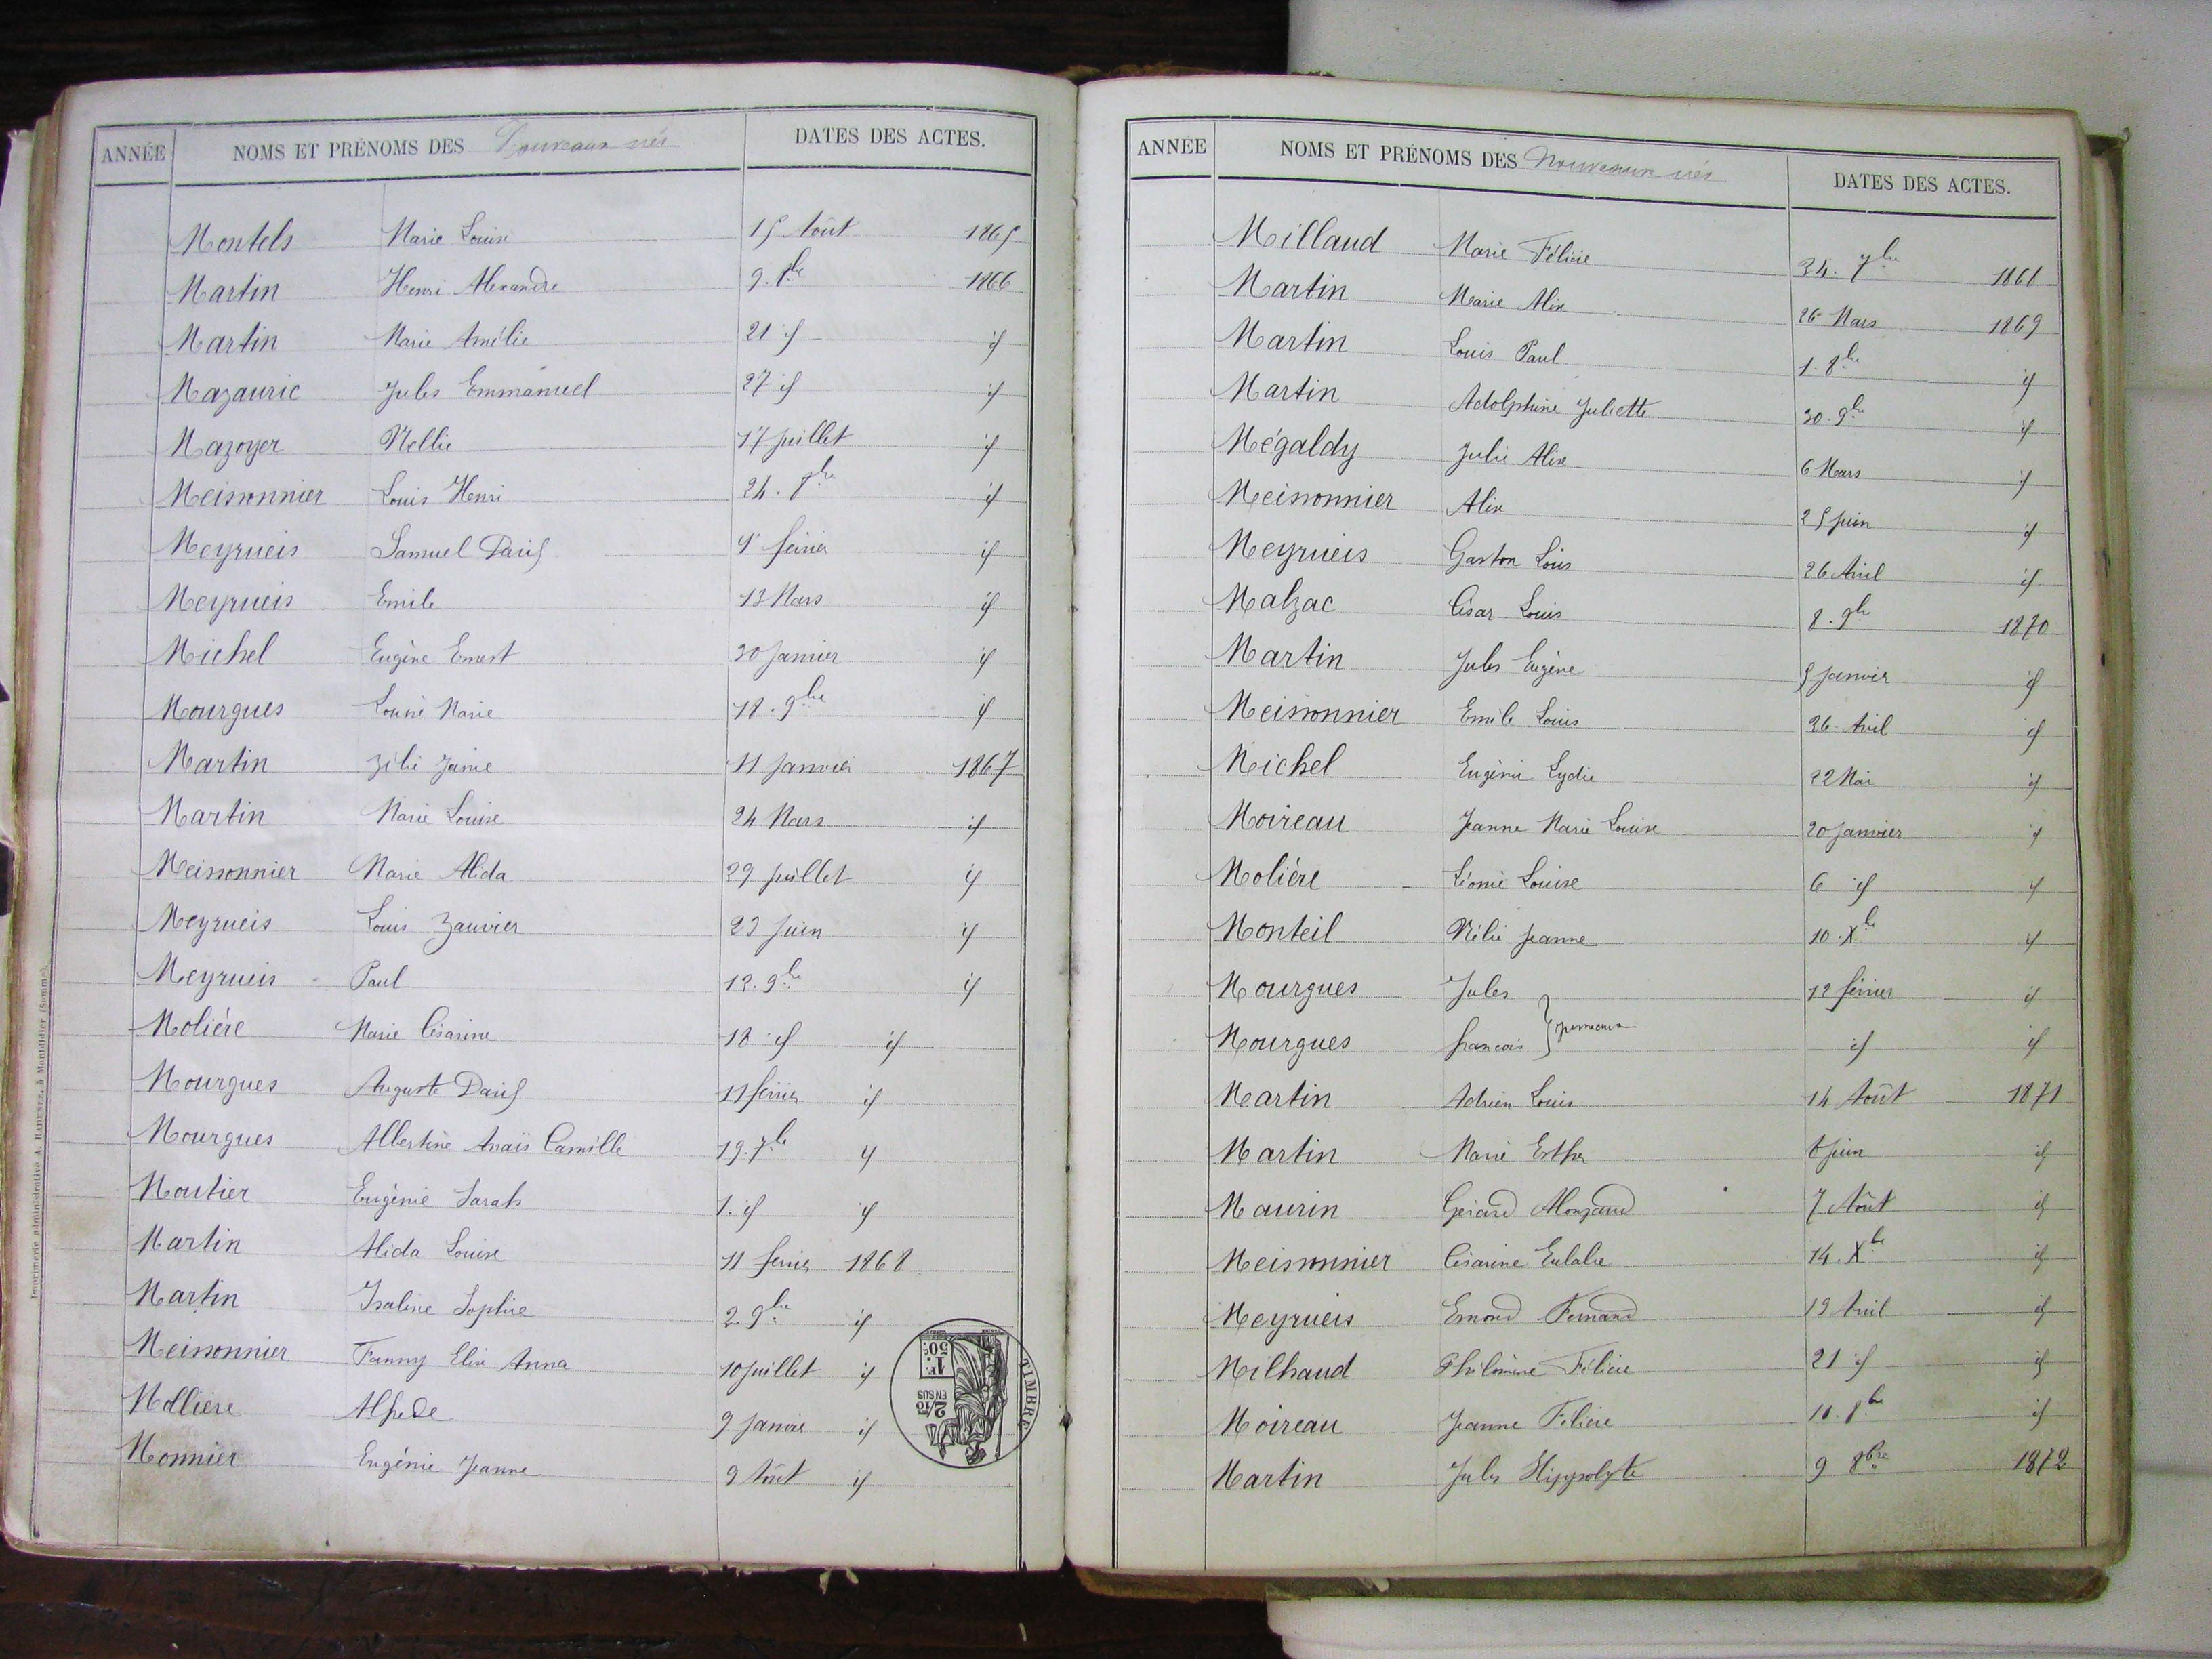 ANNÉE NOMS ET PRÉNOMS DES Nouveaux nés DATES DES ACTES.
Montels Marie Louise 15 Août 1865
Martin Henri Alexandre 9. 8bre 1866
Martin Marie Amélie 21 id id
Mazauric Jules Emmanuel 27 id id
Mazoyer Nellie 17 juillet id
Meissonnier Louis Henri 24. 8bre id
Meyrueis Samuel David 4 février id
Meyrueis Emile 13 Mars id
Michel Eugène Ernest 30 Janvier id
Mourgues Louise Marie 18. 9bre id
Martin Zélie Janie 11 Janvier 1867
Martin Marie Louise 24 Mars id
Meissonnier Marie Alida 29 juillet id
Meyrueis Louis Zauvier 23 Juin id
Meyrueis Paul 13. 9bre id
Molière Marie Césarine 18 id id
Mourgues Auguste David 11 février id
Mourgues Albertine Anaïs Camille 19. 7bre id
Moutier Eugénie Sarah 1. id id
Martin Alida Louise 11 février 1868
Martin Isaline Sophie 2. 9bre id
Meissonnier Fanny Elix Anna 10 juillet id
Mollière Alfrede 9 janvier id
Monnier Eugénie Jeanne 9 Août id
TIMBRE
1F. 50c.
2/10 EN SUS
Imprimerie administrative A. RADENEZ, à Montdidier (Somme).
ANNÉE NOMS ET PRÉNOMS DES Nouveaux nés DATES DES ACTES.
Millaud Marie Félicie 24. 7bre 1868
Martin Marie Alix 26 Mars 1869
Martin Louis Paul 1. 8bre id
Martin Adolphine Juliette 30. 9bre id
Mégaldy Julie Alix 6 Mars id
Meissonnier Alix 25 juin id
Meyrueis Gaston Louis 26 Avril id
Malzac César Louis 8. 9bre 1870
Martin Jules Eugène 5 Janvier id
Meissonnier Emile Louis 26 Avril id
Michel Eugénie Lydie 22 Mai id
Moireau Jeanne Marie Louise 20 janvier id
Molière Léonie Louise 6 id id
Monteil Nélie Jeanne 10. Xbre id
Mourgues Jules 12 février id
Mourgues francois } jumeaux id id
Martin Adrien Louis 14 Août 1871
Martin Marie Esther 8 juin id
Maurin Gérard 7 Août id
Meissonnier Césarine Eulalie 14. Xbre id
Meyrueis Emond Fernand 19 Avril id
Milhaud Philomène Félicie 21 id id
Moireau Jeanne Félicie 18. 8bre id
Martin Jules Hippolyte 9 8bre 1872